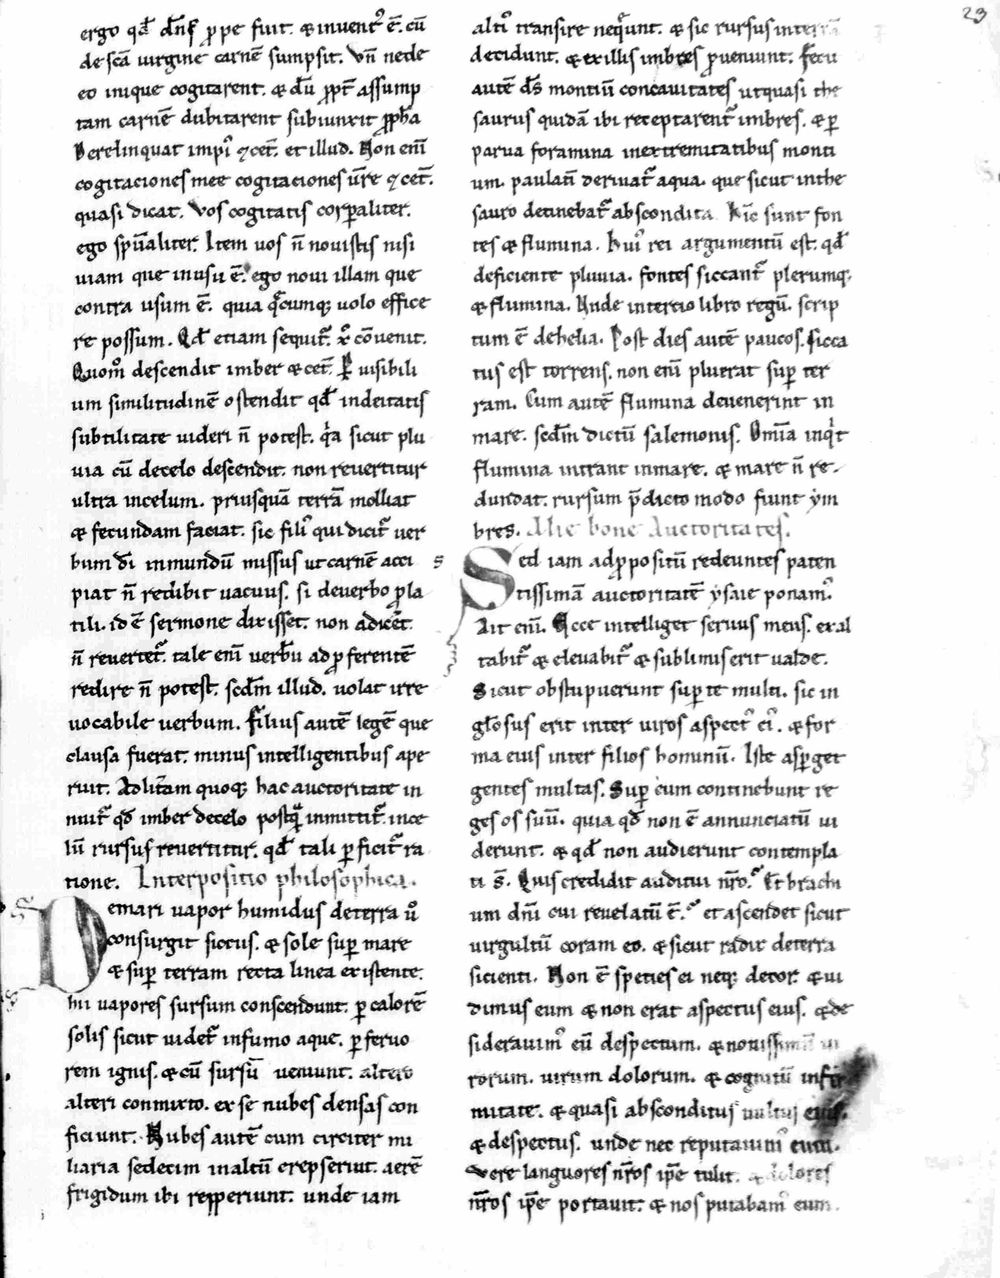 23
ergo qd̄ dn̄s ꝓpe fuit. & inuentꝰ ē. cū
de sc̄a uirgine carnē sumpsit. Vn̄ ne de
eo inique cogitarent. & dū ꝓpt̄ assump
tam carnē dubitarent subiunxit ꝓph̄a
Derelinquat impiꝰ ⁊cet̄. et illud. Non eni̅
cogitaciones mee cogitaciones ur̄e ⁊cet̄.
quasi dicat. Vos cogitatis corꝑaliter.
ego spūaliter. Item uos n̄ nouistis nisi
uiam que in usu ē. ego noui illam que
contra usum ē. quia q̄cumq; uolo effice
re possum. Qd̄ etiam sequit᷑. x̄ cōuenit.
Quom̊ descendit imber & cet̄. Ꝑ uisibili
um similitudinē ostendit qd̄ indeitatis
subtilitate uideri n̄ potest. qᷓa sicut plu
uia cū decelo descendit. non reuertitur
ultra incelum. priusquā terrā molliat
& fecundam faciat. sic filiꝰ qui dicit᷑ uer
bum di̅ in mundū missus ut carnē acci
piat n̄ redibit uacuus. si deuerbo ꝓla
tili. id ē sermone dixisset. non adicēt.
n̄ reuertet᷑. tale eni̅ uerbū ad ꝓferentē
redire n̄ potest. scd̄m illud. uolat irre
uocabile uerbum. Filius autē legē que
clausa fuerat. minus intelligentibus ape
ruit. Ad lit̄am quoq; hac auctoritate in
nuit᷑ qd̄ imber decelo postqᷓ inmittit᷑. ince
lū rursus reuertitur. qd̄ tali ꝑficit᷑ ra
tione. Interpositio philosophica.
De mari uapor humidus deterra ů
consurgit siccus. & sole suꝑ mare
& suꝑ terram recta linea existente.
hii uapores sursum conscendunt. ꝑ calorē
solis sicut uidet᷑ infumo aque. ꝑ feruo
rem ignis. & cū sursū ueniunt. altero
alteri conmixto. ex se nubes densas con
ficiunt. Nubes autē cum circiter mi
liaria sedecim in altū erepserint. aerē
frigidum ibi repperiunt. unde iam
altiꝰ transire neqᷓunt. & sic rursus interrā
decidunt. & ex illis imbres ꝓueniunt. Fecit
autē ds̄ montiū concauitates ut quasi the
saurus quidā ibi receptarent᷑ imbres. & ꝑ
parua foramina in extremitatibus monti
um. paulati̅ deriuat᷑ aqua. que sicut inthe
sauro detinebat᷑ abscondita. Hi̅c sunt fon
tes & flumina. Huiꝰ rei argumentū est. qd̄
deficiente pluuia. fontes siccant᷑ plerumq;
& flumina. Vnde intercio libro regū. scrip
tum ē dehelia. Post dies autē paucos. sicca
tus est torrens. non eni̅ pluerat suꝑ ter
ram. Cum autē flumina deuenerint in
mare. scd̄m dictū salemonis. Omi̅a inqͥt
flumina intrant inmare. & mare n̄ re-
dundat. rursum p̄dicto modo fiunt ym
bres. Alie bone Auctoritates.
s Sed iam ad ꝓpositū redeuntes paten
tissimā auctoritatē ysaie ponamꝰ.
Ait eni̅. Ecce intelliget seruus meus. exal
tabit᷑ & eleuabit᷑ & sublimis erit ualde.
Sicut obstupuerunt suꝑ te multi. sic in
gl̄osus erit inter uiros aspectꝰ eiꝰ. & for
ma eius inter filios hominū. Iste asꝑget
gentes multas. Suꝑ eum continebunt re
ges os suū. quia qd̄ non ē annunciatū ui
derunt. & qd̄ non audierunt contempla
ti s̄. Quis credidit auditui nr̄o. Et brachi
um dn̄i cui reuelatū ē. et ascendet sicut
uirgultū coram eo. & sicut radix deterra
sicienti. Non ē species ei neq; decor. & ui
dimus eum & non erat aspectus eius. & de
siderauimꝰ eū despectum. & nouissimū ui
rorum. uirum dolorum. & cognitū infir
mitate. & quasi absconditus uultus eius.
& despectus. unde nec reputauimꝰ eum.
Vere languores nr̄os ip̄e tulit. & dolores
nr̄os ip̄e portauit. & nos putabamꝰ eum.